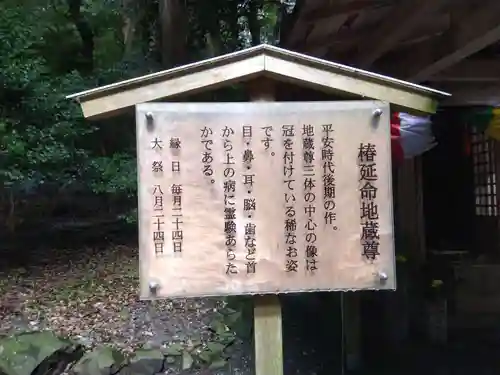 椿延命地蔵尊
平安時代後期の作。
地蔵尊三体の中心の像は
冠を付けている稀なお姿
です。
目・鼻・耳・脳・歯など首
から上の病に霊験あらた
かである。
縁日 毎月二十四日
大祭 八月二十四日